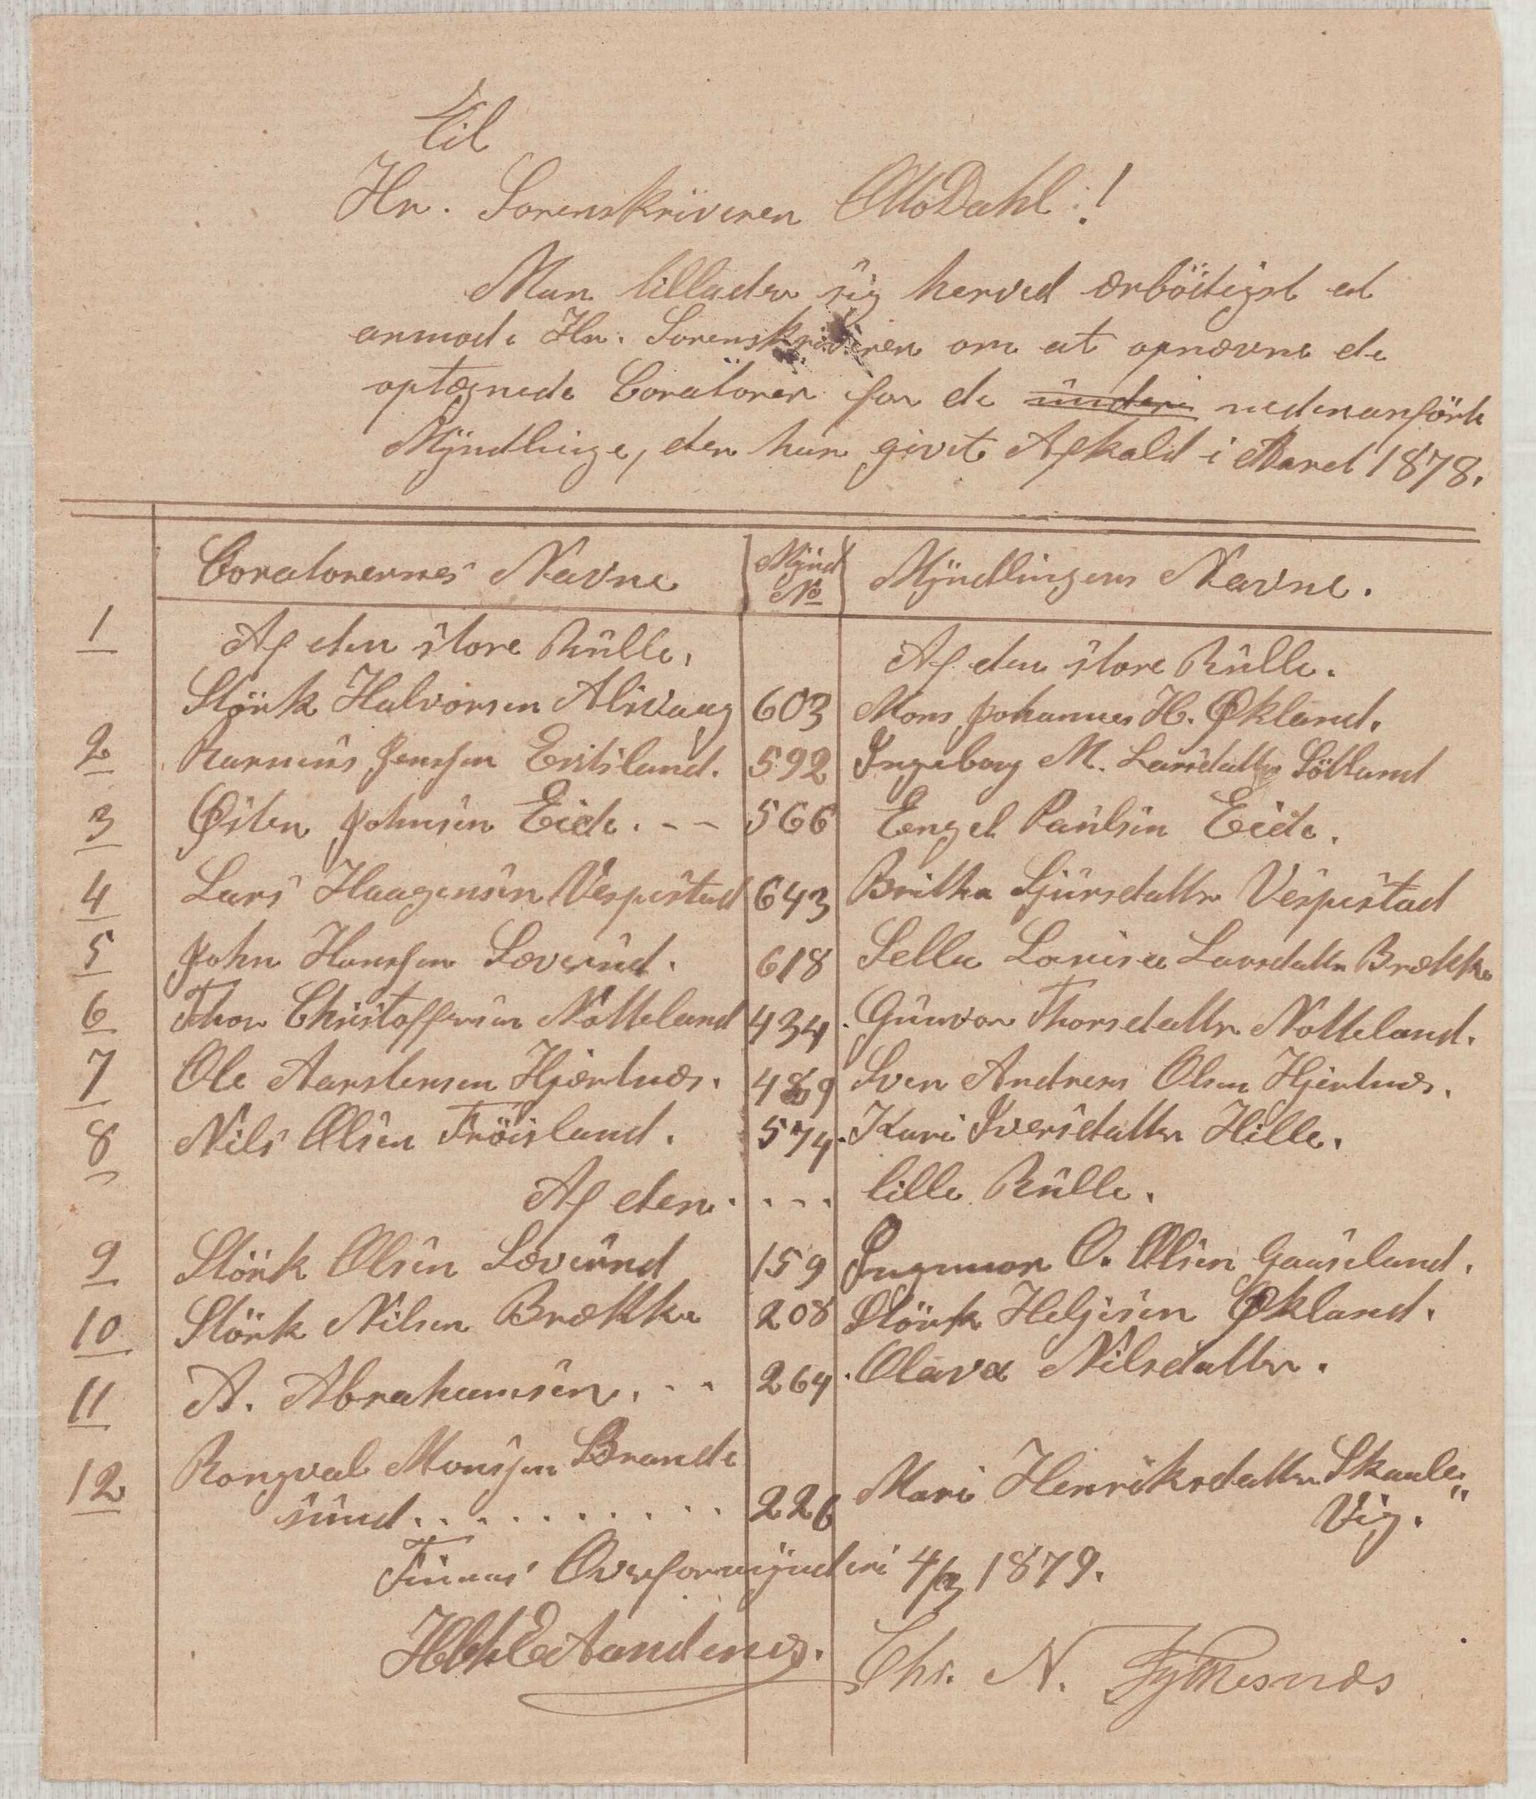 Til
Hr. Sorenskriveren Otto Dahl!
Man tillader sig herved ærbödigst at
anmode Hr. Sorenskriveren om at opnævne de
optægnede Coratorer for de under nedenanförte
Myndlinge, der har givet Afkald i Aaret 1878.
Coratorernes Navne Mynd No Myndlingens Navne.
1 Af den store Rulle. Af den store Rulle.
Störk Halvorsen Alsvaag 603 Mons Johannes H. Økland.
2 Rasmus Jenssen Eidsland. 592 Ingeborg M. Larsdatter Lötland
3 Østen Johnsen Eide. - - 566 Engel Paulsen Eide.
4 Lars Haagensen Vespestad 643 Britha Sjursdatter Vespestad
5 John Hanssen Sæverud. 618 Sella Lovisa Larsdatter Brække
6 Thor Christoffersen Notteland 434. Gunvor Thorsdatter Notteland.
7 Ole Aarstensen Hjertnæs. 489 Sven Andreas Olsen Hjertnæs.
8 Nils Olsen Fröisland. 574. Kari Iversdatter Hille.
Af den . . . . lille Rulle.
9 Störk Olsen Sæverud 159 Ingemor O. Olsen Gaaseland.
10 Störk Nilsen Brække 208 Störk Helgesen Økland.
11 A. Abrahamsen. - - 264. Olava Nilsdatter.
12 Rongval Monssen Brande
sund. . . . . . . . . 226 Mari Henriksdatter Skaale„
Vig.
Finnaas Overformynderi 4/3 1879.
Chr. N. Tjernesnæs